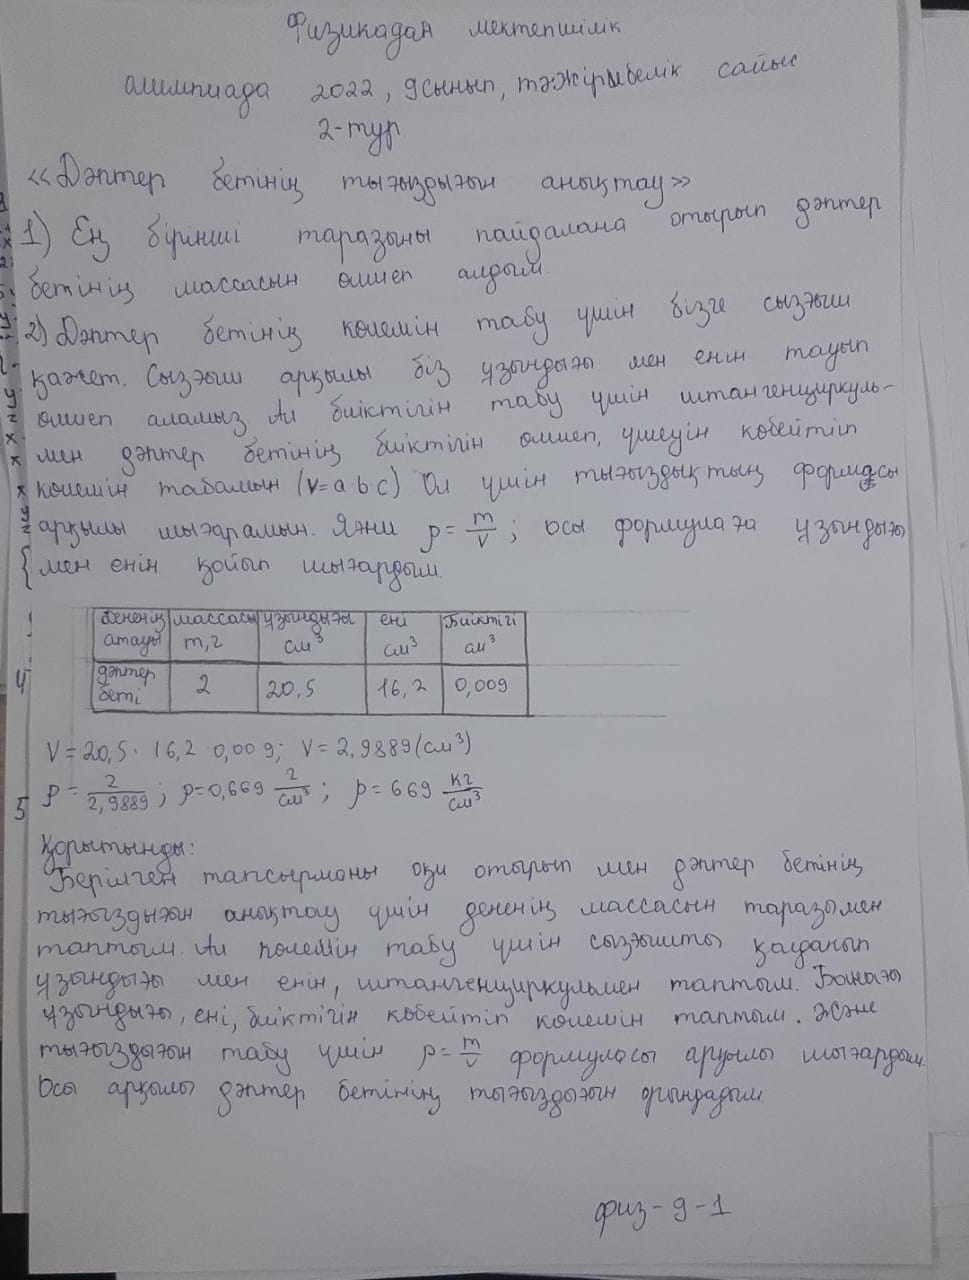 Физикадан мектепшілік
олимпиада 2022, 9сынып, тәжірибелік сайыс
2-тур
«Дәптер бетінің тығыздығын анықтау»
1) Ең бірінші таразыны пайдалана отырып дәптер
бетінің массасын өлшеп алдым.
2) Дәптер бетінің көлемін табу үшін бізге сызғыш
қажет. Сызғыш арқылы біз ұзындығы мен енін тауып
өлшеп аламыз Ал биіктігін табу үшін штангенциркуль-
мен дәптер бетінің биіктігін өлшеп, үшеуін көбейтіп
көлемін табамын (v=a·b·c) Ол үшін тығыздықтың формуласы
арқылы шығарамын. Яғни ρ= m/v ; осы формулаға ұзындығы
мен енін қойып шығардым.
Дененің атауы массасы m,г ұзындығы см³ ені см³ Биіктігі см³
дәптер беті 2 20,5 16,2 0,009
V=20,5· 16,2·0,009; V= 2,9889(см³)
ρ= 2/2,9889 ; ρ=0,669 г/см³ ; ρ= 669 кг/см³
Қорытынды:
Берілген тапсырманы оқи отырып мен дәптер бетінің
тығыздығын анықтау үшін дененің массасын таразымен
таптым. Ал көлемін табу үшін сызғышты қолданып
ұзындығы мен енін, штангенциркульмен таптым. Бағанағы
ұзындығы, ені, биіктігін көбейтіп көлемін таптым. Және
тығыздығын табу үшін ρ= m/v формуласы арқылы шығардым.
Осы арқылы дәптер бетінің тығыздығын орындадым.
физ-9-1
4
5